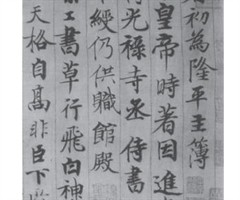 初為隆平主簿
皇帝時著因進
光祿寺丞侍書
綬仍供職館殿
工書草行飛白神
天格自高非臣下